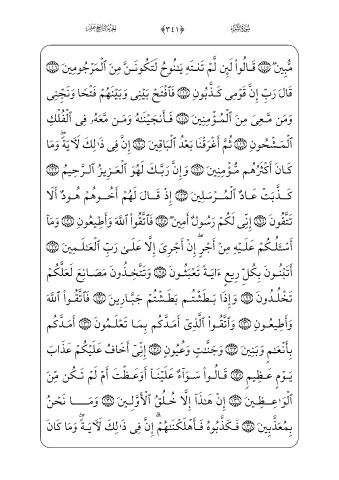 سُورَةُ الشُّعَرَاءِ ﴿٣٤١﴾ الجُزْءُ التَّاسِعَ عَشَرَ
مُّبِينٌ ﴿١١٥﴾ قَالُوا۟ لَئِن لَّمْ تَنتَهِ يَـٰنُوحُ لَتَكُونَنَّ مِنَ ٱلْمَرْجُومِينَ ﴿١١٦﴾
قَالَ رَبِّ إِنَّ قَوْمِى كَذَّبُونِ ﴿١١٧﴾ فَٱفْتَحْ بَيْنِى وَبَيْنَهُمْ فَتْحًا وَنَجِّنِى
وَمَن مَّعِىَ مِنَ ٱلْمُؤْمِنِينَ ﴿١١٨﴾ فَأَنجَيْنَـٰهُ وَمَن مَّعَهُۥ فِى ٱلْفُلْكِ
ٱلْمَشْحُونِ ﴿١١٩﴾ ثُمَّ أَغْرَقْنَا بَعْدُ ٱلْبَاقِينَ ﴿١٢٠﴾ إِنَّ فِى ذَٰلِكَ لَـَٔايَةً ۖ وَمَا
كَانَ أَكْثَرُهُم مُّؤْمِنِينَ ﴿١٢١﴾ وَإِنَّ رَبَّكَ لَهُوَ ٱلْعَزِيزُ ٱلرَّحِيمُ ﴿١٢٢﴾
كَذَّبَتْ عَادٌ ٱلْمُرْسَلِينَ ﴿١٢٣﴾ إِذْ قَالَ لَهُمْ أَخُوهُمْ هُودٌ أَلَا
تَتَّقُونَ ﴿١٢٤﴾ إِنِّى لَكُمْ رَسُولٌ أَمِينٌ ﴿١٢٥﴾ فَٱتَّقُوا۟ ٱللَّهَ وَأَطِيعُونِ ﴿١٢٦﴾ وَمَآ
أَسْـَٔلُكُمْ عَلَيْهِ مِنْ أَجْرٍ ۖ إِنْ أَجْرِىَ إِلَّا عَلَىٰ رَبِّ ٱلْعَـٰلَمِينَ ﴿١٢٧﴾
أَتَبْنُونَ بِكُلِّ رِيعٍ ءَايَةً تَعْبَثُونَ ﴿١٢٨﴾ وَتَتَّخِذُونَ مَصَانِعَ لَعَلَّكُمْ
تَخْلُدُونَ ﴿١٢٩﴾ وَإِذَا بَطَشْتُم بَطَشْتُمْ جَبَّارِينَ ﴿١٣٠﴾ فَٱتَّقُوا۟ ٱللَّهَ
وَأَطِيعُونِ ﴿١٣١﴾ وَٱتَّقُوا۟ ٱلَّذِىٓ أَمَدَّكُم بِمَا تَعْلَمُونَ ﴿١٣٢﴾ أَمَدَّكُم
بِأَنْعَـٰمٍ وَبَنِينَ ﴿١٣٣﴾ وَجَنَّـٰتٍ وَعُيُونٍ ﴿١٣٤﴾ إِنِّىٓ أَخَافُ عَلَيْكُمْ عَذَابَ
يَوْمٍ عَظِيمٍ ﴿١٣٥﴾ قَالُوا۟ سَوَآءٌ عَلَيْنَآ أَوَعَظْتَ أَمْ لَمْ تَكُن مِّنَ
ٱلْوَٰعِظِينَ ﴿١٣٦﴾ إِنْ هَـٰذَآ إِلَّا خُلُقُ ٱلْأَوَّلِينَ ﴿١٣٧﴾ وَمَا نَحْنُ
بِمُعَذَّبِينَ ﴿١٣٨﴾ فَكَذَّبُوهُ فَأَهْلَكْنَـٰهُمْ ۗ إِنَّ فِى ذَٰلِكَ لَـَٔايَةً ۖ وَمَا كَانَ